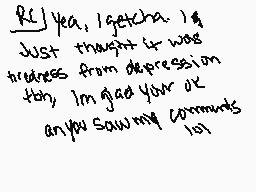 RC] yea, I getcha. I
Just thought it was
tiredness from depression
tbh, Im glad your ok
an you saw my comments
lol